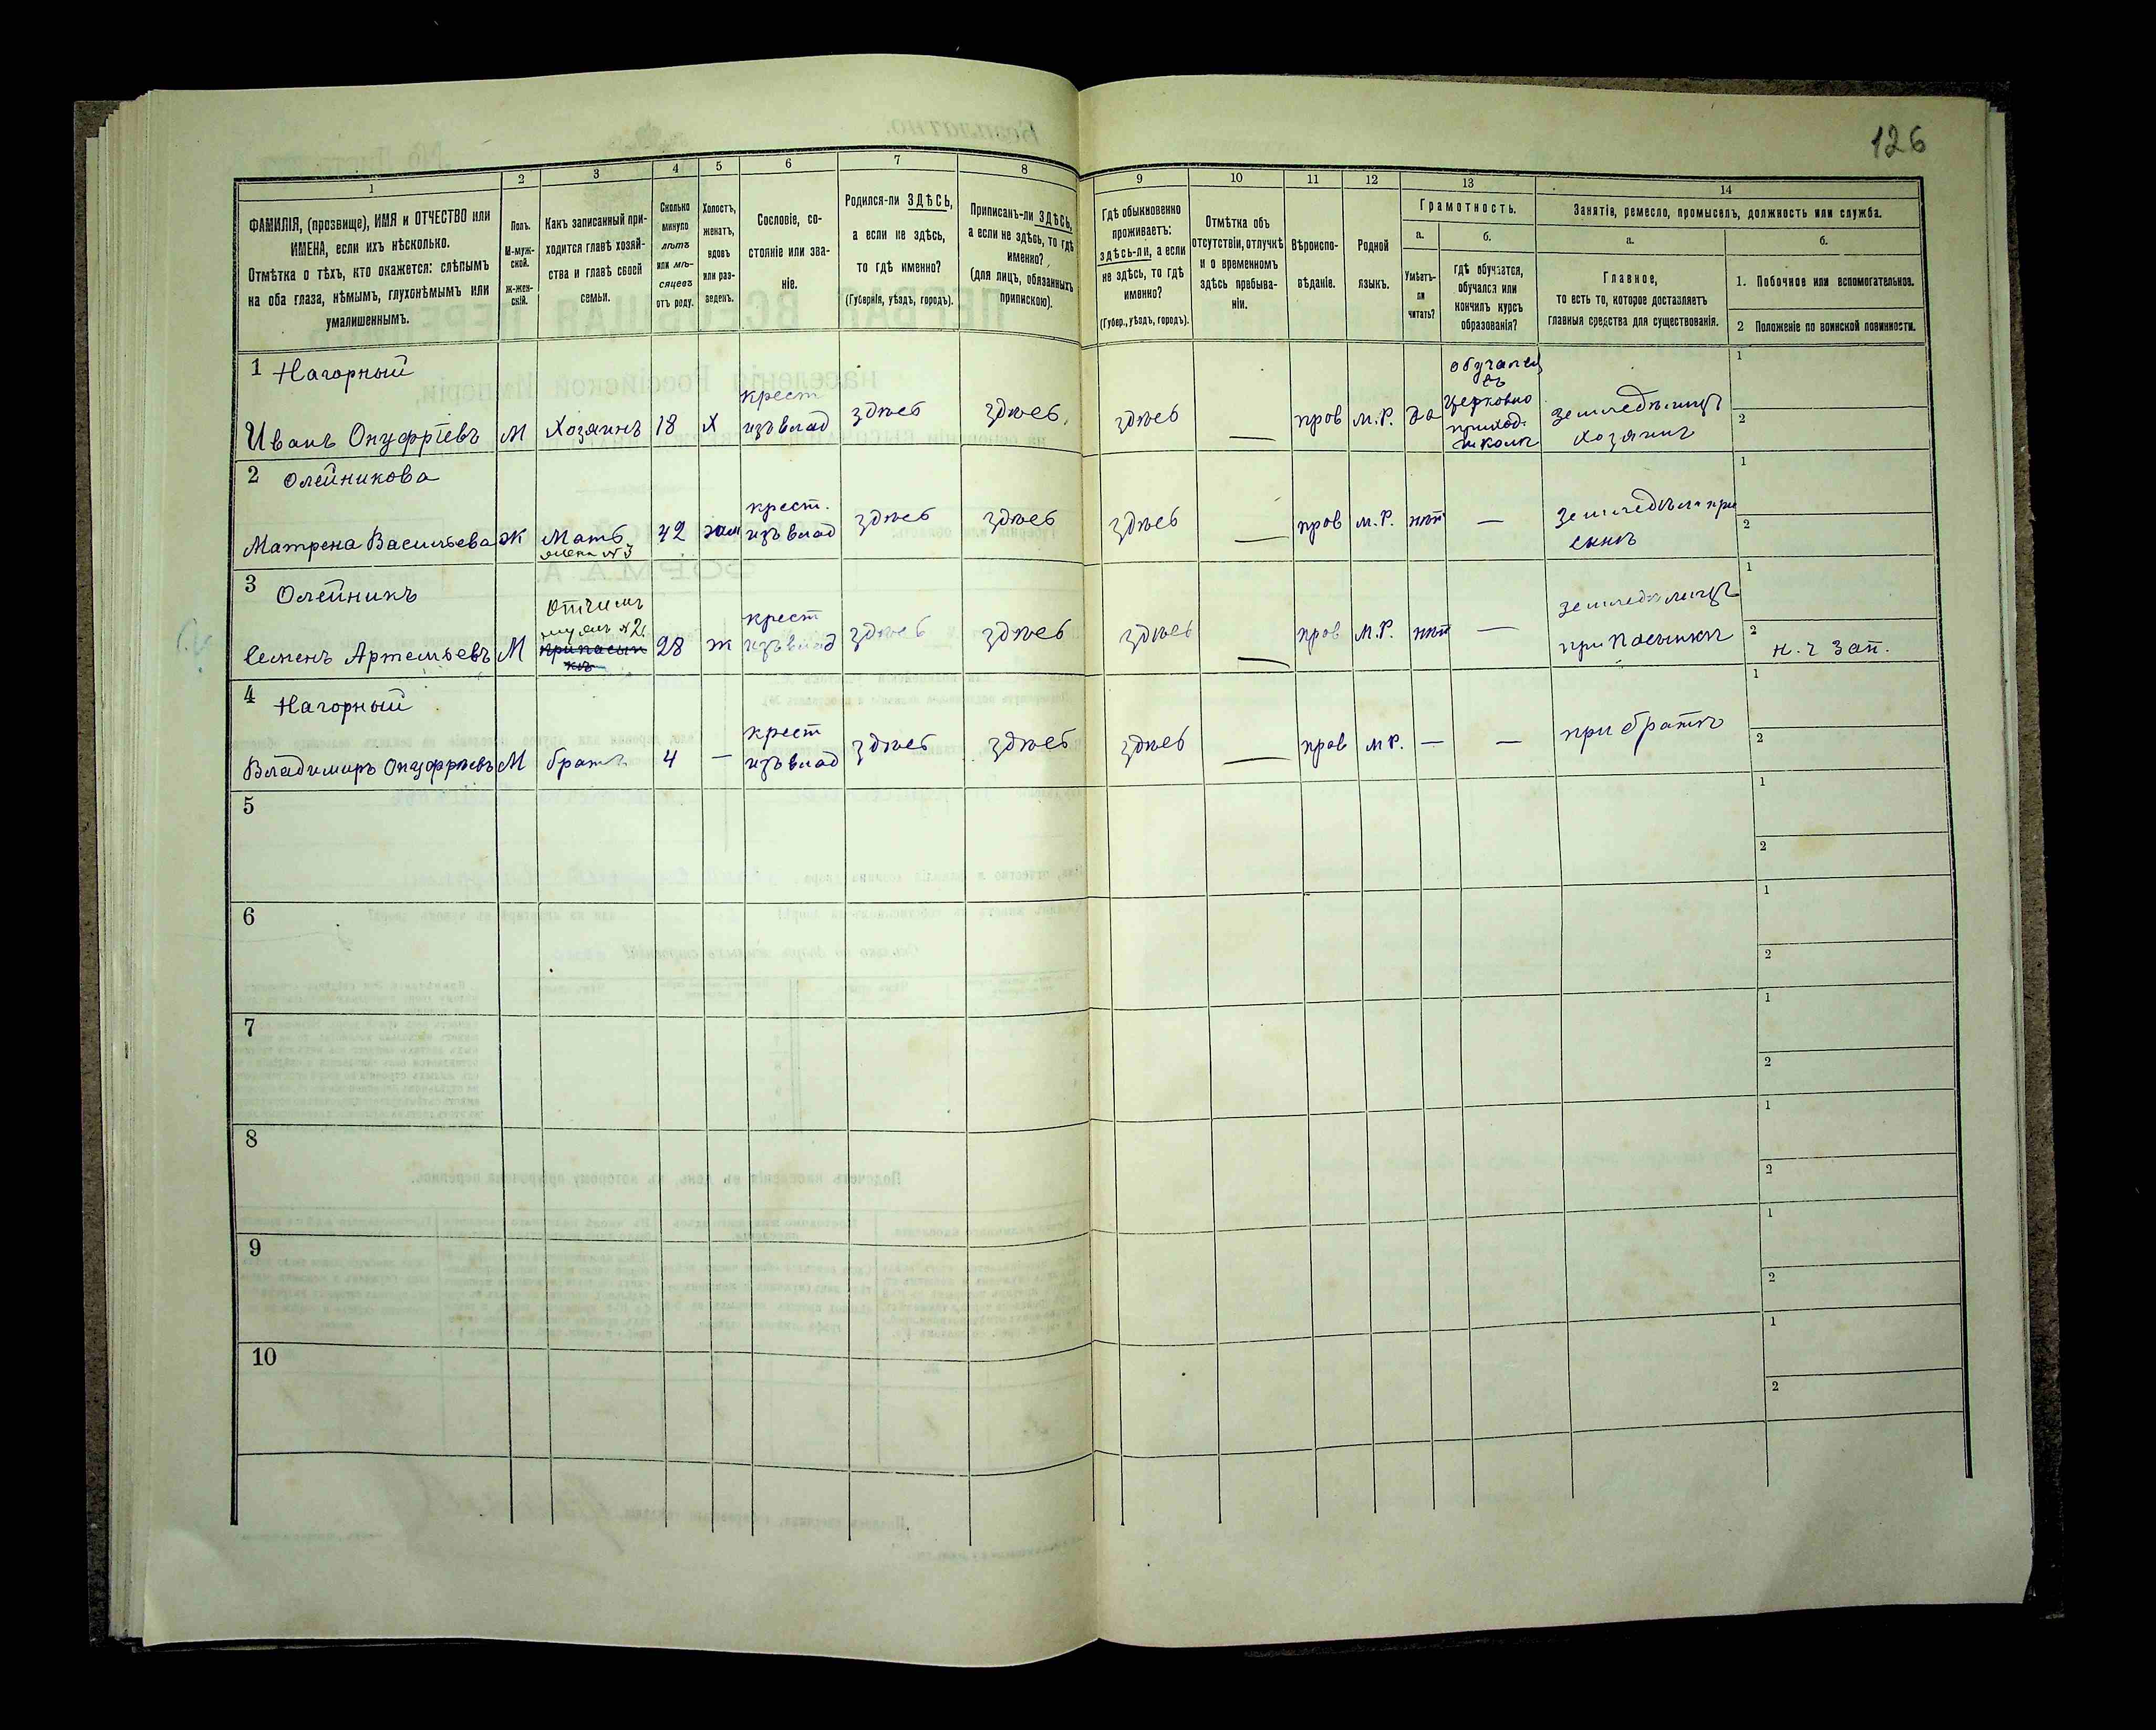 126
1
2
3
4
5
6
7
8
9
10
11
12
13
14
ФАМИЛІЯ, (прозвище), ИМЯ и ОТЧЕСТВО или
ИМЕНА, если ихъ нѣсколько.
Отмѣтка о тѣхъ, кто окажется: слѣпымъ
на оба глаза, нѣмымъ, глухонѣмымъ или
умалишеннымъ.
Полъ.
М-муж-
ской.
ж-жен-
скій.
Какъ записанный при-
ходится главѣ хозяй-
ства и главѣ своей
семьи.
Сколько
минуло
лѣтъ
или мѣ-
сяцевъ
отъ роду.
Холостъ,
женатъ,
вдовъ
или раз-
веденъ.
Сословіе, со-
стояніе или зва-
ніе.
Родился-ли ЗДѢСЬ,
а если не здѣсь,
то гдѣ именно?
(Губернія, уѣздъ, городъ).
Приписанъ-ли ЗДѢСЬ,
а если не здѣсь, то гдѣ
именно?
(для лицъ, обязанныхъ
припискою).
Гдѣ обыкновенно
проживаетъ:
здѣсь-ли, а если
не здѣсь, то гдѣ
именно?
(Губер., уѣздъ, городъ).
Отмѣтка объ
отсутствіи, отлучкѣ
и о временномъ
здѣсь пребыва-
ніи.
Вѣроиспо-
вѣданіе.
Родной
языкъ.
Грамотность.
а.
Умѣетъ-
ли
читать?
б.
гдѣ обучается,
обучался или
кончилъ курсъ
образованія?
Занятіе, ремесло, промыселъ, должность или служба.
а.
Главное,
то есть то, которое доставляетъ
главныя средства для существованія.
б.
1. Побочное или вспомогательное.
2 Положеніе по воинской повинности.
1 Нагорный
Иванъ Онуфріевъ М Хозяинъ 18 Х
крест
изъ влад
здѣсь здѣсь здѣсь — прав м.р. да
обучался
въ
церковно
приход.
школѣ
земледѣлецъ
хозяинъ
1
2
2 Олейникова
Матрена Васильева Ж Мать
жена №3
42 зам
крест.
изъ влад
здѣсь здѣсь здѣсь — прав м.р. нѣт —
земледѣл при
сынѣ
1
2
3 Олейникъ
Семенъ Артемьевъ М
отчимъ
мужъ №2
припасын
кѣ
28 ж
крест
изъ влад
здѣсь здѣсь здѣсь — прав м.р. нѣт —
земледѣлецъ
при пасынкѣ
1
2 н. ч зап.
4 Нагорный
Владимиръ Онуфріевъ М братъ 4 —
крест
изъ влад
здѣсь здѣсь здѣсь — прав м р. — — при братѣ
1
2
5
1
2
6
1
2
7
1
2
8
1
2
9
1
2
10
1
2